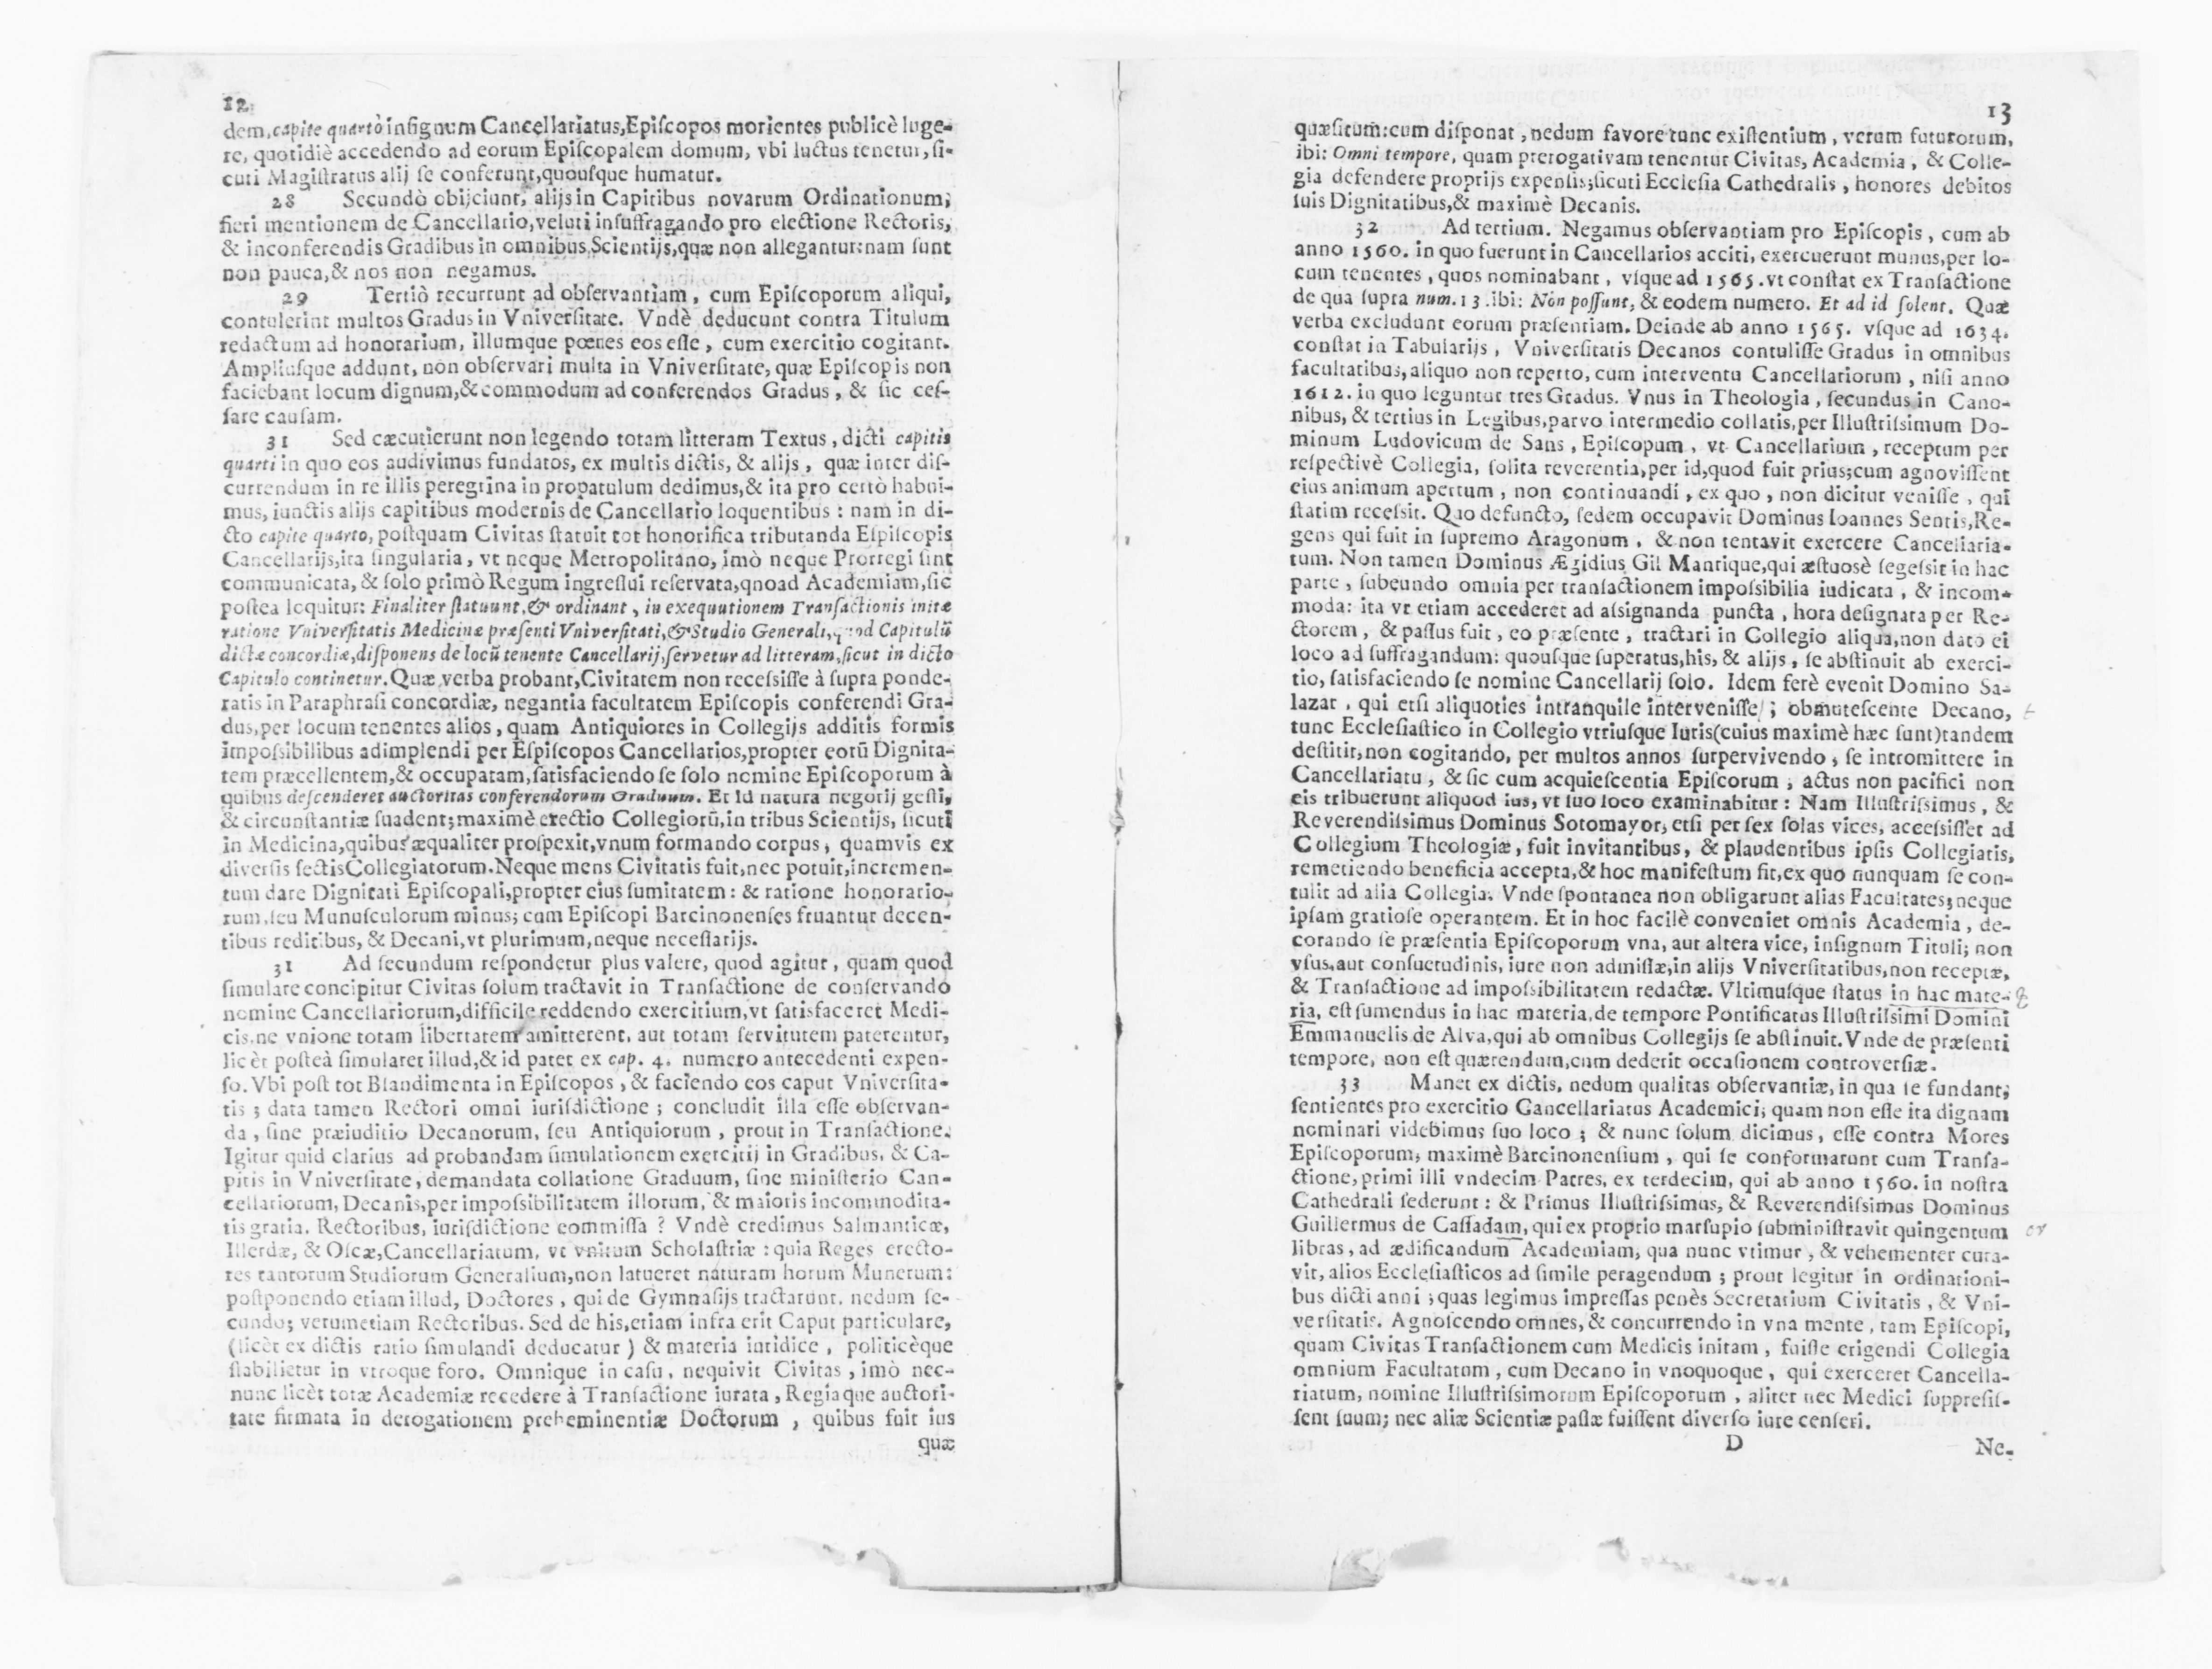 12
dem, capite quartò insignum Cancellariatus, Episcopos morientes publicè luge-
re, quotidiè accedendo ad eorum Episcopalem domum, vbi luctus tenetur, si-
cuti Magistratus alij se conferunt, quousque humatur.
28 Secundò obijciunt, alijs in Capitibus novarum Ordinationum;
fieri mentionem de Cancellario, veluti insuffragando pro electione Rectoris,
& inconferendis Gradibus in omnibus Scientijs, quæ non allegantur: nam sunt
non pauca, & nos non negamus.
29 Tertiò recurrunt ad observantiam, cum Episcoporum aliqui,
contulerint multos Gradus in Vniversitate. Vndè deducunt contra Titulum
redactum ad honorarium, illumque pœnes eos esse, cum exercitio cogitant.
Ampliusque addunt, non observari multa in Vniversitate, quæ Episcopis non
faciebant locum dignum, & commodum ad conferendos Gradus, & sic ces-
sare causam.
31 Sed cæcutierunt non legendo totam litteram Textus, dicti capitis
quarti in quo eos audivimus fundatos, ex multis dictis, & alijs, quæ inter dis-
currendum in re illis peregrina in propatulum dedimus, & ita pro certò habui-
mus, iunctis alijs capitibus modernis de Cancellario loquentibus: nam in di-
cto capite quarto, postquam Civitas statuit tot honorifica tributanda Espiscopis
Cancellarijs, ita singularia, vt neque Metropolitano, imò neque Prorregi sint
communicata, & solo primò Regum ingressui reservata, qnoad Academiam, sic
postea loquitur: Finaliter statuunt, & ordinant, in exequutionem Transactionis initæ
ratione Vniversitatis Medicinæ præsenti Vniversitati, & Studio Generali, quod Capitulũ
dictæ concordiæ, disponens de locũ tenente Cancellarij, servetur ad litteram, sicut in dicto
Capitulo continetur. Quæ verba probant, Civitatem non recessisse à supra ponde-
ratis in Paraphrasi concordiæ, negantia facultatem Episcopis conferendi Gra-
dus, per locum tenentes alios, quam Antiquiores in Collegijs additis formis
impossibilibus adimplendi per Espiscopos Cancellarios, propter eorũ Dignita-
tem præcellentem, & occupatam, satisfaciendo se solo nomine Episcoporum à
quibus descenderet auctoritas conferendorum Graduum. Et id natura negotij gesti,
& circunstantiæ suadent; maximè erectio Collegiorũ, in tribus Scientijs, sicuti
in Medicina, quibus æqualiter prospexit, vnum formando corpus, quamvis ex
diversis sectis Collegiatorum. Neque mens Civitatis fuit, nec potuit, incremen-
tum dare Dignitati Episcopali, propter eius sumitatem: & ratione honorario-
rum, seu Munusculorum minus; cum Episcopi Barcinonenses fruantur decen-
tibus reditibus, & Decani, vt plurimum, neque necessarijs.
31 Ad secundum respondetur plus valere, quod agitur, quam quod
simulare concipitur Civitas solum tractavit in Transactione de conservando
nomine Cancellariorum, difficile reddendo exercitium, vt satisfaceret Medi-
cis, ne vnione totam libertatem amitterent, aut totam servitutem paterentur,
licèt posteà simularet illud, & id patet ex cap. 4. numero antecedenti expen-
so. Vbi post tot Blandimenta in Episcopos, & faciendo eos caput Vniversita-
tis; data tamen Rectori omni iurisdictione; concludit illa esse observan-
da, sine præiuditio Decanorum, seu Antiquiorum, prout in Transactione.
Igitur quid clarius ad probandam simulationem exercitij in Gradibus, & Ca-
pitis in Vniversitate, demandata collatione Graduum, sine ministerio Can-
cellariorum, Decanis, per impossibilitatem illorum, & maioris incommodita-
tis gratia. Rectoribus, iurisdictione commissa? Vndè credimus Salmanticæ,
Illerdæ, & Oscæ, Cancellariatum, vt vnitum Scholastriæ: quia Reges erecto-
res tantorum Studiorum Generalium, non latueret naturam horum Munerum:
postponendo etiam illud, Doctores, qui de Gymnasijs tractarunt, nedum se-
cundo; verumetiam Rectoribus. Sed de his, etiam infra erit Caput particulare,
(licèt ex dictis ratio simulandi deducatur) & materia iuridice, politicèque
stabilietur in vtroque foro. Omnique in casu, nequivit Civitas, imò nec-
nunc licèt totæ Academiæ recedere à Transactione iurata, Regiaque auctori-
tate firmata in derogationem preheminentiæ Doctorum, quibus fuit ius
quæ
13
quæsitum: cum disponat, nedum favore tunc existentium, verum futurorum,
ibi: Omni tempore, quam prerogativam tenentur Civitas, Academia, & Colle-
gia defendere proprijs expensis; sicuti Ecclesia Cathedralis, honores debitos
suis Dignitatibus, & maximè Decanis.
32 Ad tertium. Negamus observantiam pro Episcopis, cum ab
anno 1560. in quo fuerunt in Cancellarios acciti, exercuerunt munus, per lo-
cum tenentes, quos nominabant, vsque ad 1565. vt constat ex Transactione
de qua supra num. 13. ibi: Non possunt, & eodem numero. Et ad id solent. Quæ
verba excludunt eorum præsentiam. Deinde ab anno 1565. vsque ad 1634.
constat in Tabularijs, Vniversitatis Decanos contulisse Gradus in omnibus
facultatibus, aliquo non reperto, cum interventu Cancellariorum, nisi anno
1612. in quo leguntur tres Gradus. Vnus in Theologia, secundus in Cano-
nibus, & tertius in Legibus, parvo intermedio collatis, per Illustrissimum Do-
minum Ludovicum de Sans, Episcopum, vt Cancellarium, receptum per
respectivè Collegia, solita reverentia, per id, quod fuit prius; cum agnovissent
eius animum apertum, non continuandi, ex quo, non dicitur venisse, qui
statim recessit. Quo defuncto, sedem occupavit Dominus Ioannes Sentis, Re-
gens qui fuit in supremo Aragonum, & non tentavit exercere Cancellaria-
tum. Non tamen Dominus Ægidius Gil Manrique, qui æstuosè segessit in hac
parte, subeundo omnia per transactionem impossibilia iudicata, & incom-
moda: ita vt etiam accederet ad assignanda puncta, hora designata per Re-
ctorem, & passus fuit, eo præsente, tractari in Collegio aliqua, non dato ei
loco ad suffragandum: quousque superatus, his, & alijs, se abstinuit ab exerci-
tio, satisfaciendo se nomine Cancellarij solo. Idem ferè evenit Domino Sa-
lazar, qui etsi aliquoties intranquile intervenisse; obmutescente Decano,
tunc Ecclesiastico in Collegio vtriusque Iuris (cuius maximè hæc sunt) tandem
destitit, non cogitando, per multos annos surpervivendo, se intromittere in
Cancellariatu, & sic cum acquiescentia Episcorum, actus non pacifici non
eis tribuerunt aliquod ius, vt suo loco examinabitur: Nam Illustrissimus, &
Reverendissimus Dominus Sotomayor, etsi per sex solas vices, accessisset ad
Collegium Theologiæ, fuit invitantibus, & plaudentibus ipsis Collegiatis,
remetiendo beneficia accepta, & hoc manifestum fit, ex quo nunquam se con-
tulit ad alia Collegia. Vnde spontanea non obligarunt alias Facultates; neque
ipsam gratiose operantem. Et in hoc facilè conveniet omnis Academia, de-
corando se præsentia Episcoporum vna, aut altera vice, insignum Tituli; non
vsus, aut consuetudinis, iure non admissæ, in alijs Vniversitatibus, non receptæ,
& Transactione ad impossibilitatem redactæ. Vltimusque status in hac mate-
ria, est sumendus in hac materia, de tempore Pontificatus Illustrissimi Domini
Emmanuelis de Alva, qui ab omnibus Collegijs se abstinuit. Vnde de præsenti
tempore, non est quærendum, cum dederit occasionem controversiæ.
33 Manet ex dictis, nedum qualitas observantiæ, in qua se fundant;
sentientes pro exercitio Cancellariatus Academici; quam non esse ita dignam
nominari videbimus suo loco; & nunc solum dicimus, esse contra Mores
Episcoporum, maximè Barcinonensium, qui se conformarunt cum Transa-
ctione, primi illi vndecim Patres, ex terdecim, qui ab anno 1560. in nostra
Cathedrali sederunt: & Primus Illustrissimus, & Reverendissimus Dominus
Guillermus de Cassadam, qui ex proprio marsupio subministravit quingentum
libras, ad ædificandum Academiam, qua nunc vtimur, & vehementer cura-
vit, alios Ecclesiasticos ad simile peragendum; prout legitur in ordinationi-
bus dicti anni; quas legimus impressas penès Secretatium Civitatis, & Vni-
versitatis. Agnoscendo omnes, & concurrendo in vna mente, tam Episcopi,
quam Civitas Transactionem cum Medicis initam, fuisse erigendi Collegia
omnium Facultatum, cum Decano in vnoquoque, qui exerceret Cancella-
riatum, nomine Illustrissimorum Episcoporum, aliter nec Medici suppresis-
sent suum; nec aliæ Scientiæ passæ fuissent diverso iure censeri.
D Ne-